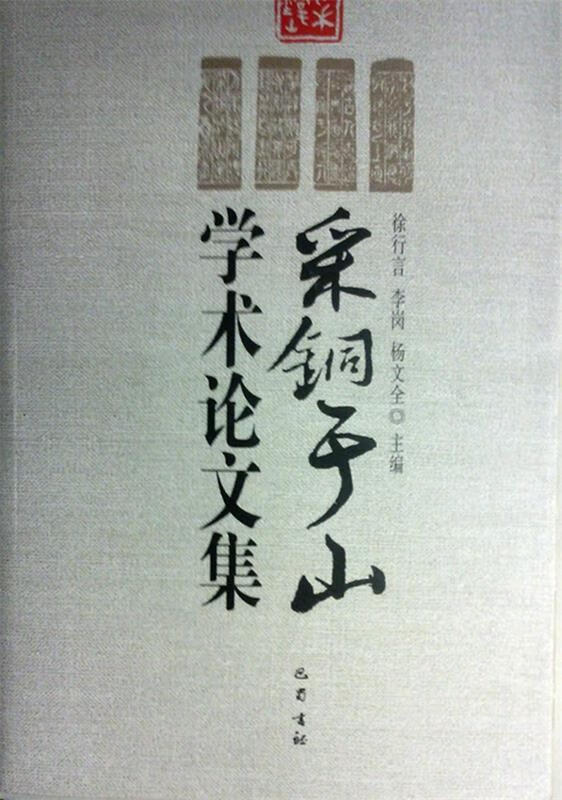 徐行言 李岗 杨文全◎主编
采銅于山
学术论文集
巴蜀书社